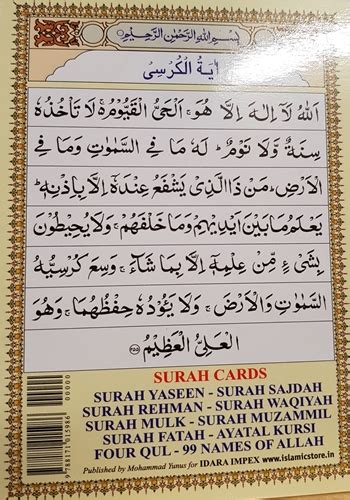 بِسْمِ اللهِ الرَّحْمٰنِ الرَّحِيْمِ
اٰيَةُ الْكُرْسِى
اَللهُ لَآ اِلٰهَ اِلَّا هُوَ ۚ اَلْحَىُّ الْقَيُّوْمُ ۚ لَا تَاْخُذُهٗ
سِنَةٌ وَّلَا نَوْمٌ ؕ لَهٗ مَا فِى السَّمٰوٰتِ وَمَا فِى
الْاَرْضِ ؕ مَنْ ذَا الَّذِىْ يَشْفَعُ عِنْدَهٗٓ اِلَّا بِاِذْنِهٖ ؕ
يَعْلَمُ مَا بَيْنَ اَيْدِيْهِمْ وَمَا خَلْفَهُمْ ۚ وَلَا يُحِيْطُوْنَ
بِشَىْءٍ مِّنْ عِلْمِهٖٓ اِلَّا بِمَا شَآءَ ۚ وَسِعَ كُرْسِيُّهُ
السَّمٰوٰتِ وَالْاَرْضَ ۚ وَلَا يَـُٔوْدُهٗ حِفْظُهُمَا ۚ وَهُوَ
الْعَلِىُّ الْعَظِيْمُ ﴿۲۵۵﴾
SURAH CARDS
SURAH YASEEN - SURAH SAJDAH
SURAH REHMAN - SURAH WAQIYAH
SURAH MULK - SURAH MUZAMMIL
SURAH FATAH - AYATAL KURSI
FOUR QUL - 99 NAMES OF ALLAH
Published by Mohammad Yunus for IDARA IMPEX www.islamicstore.in
00000
9788171015986